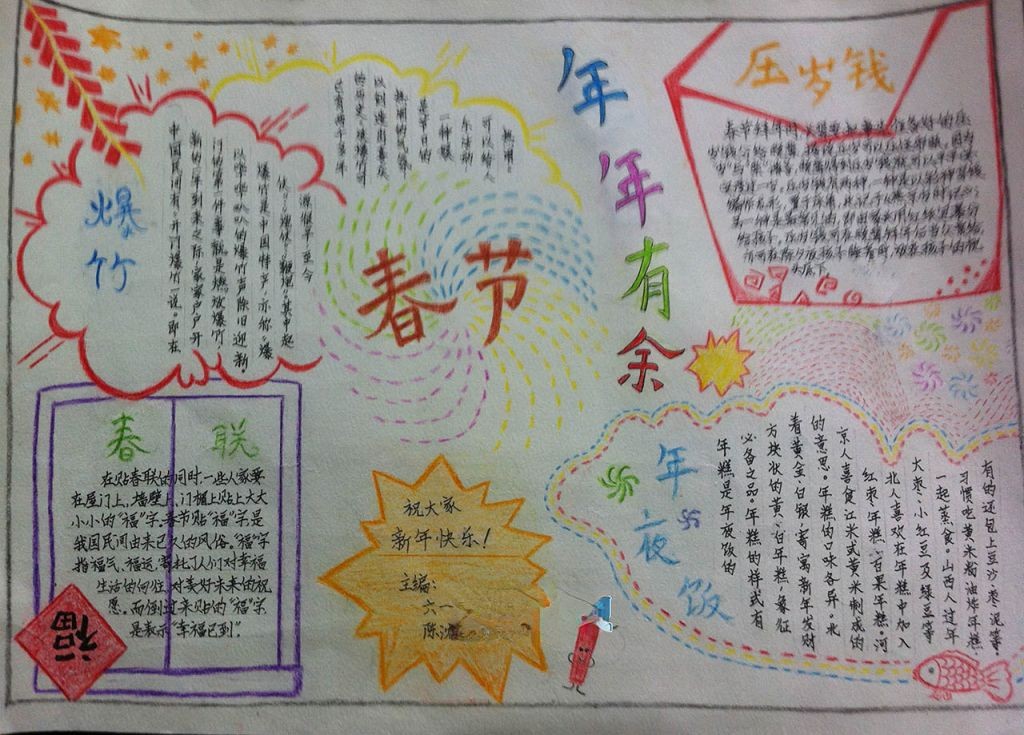 春节
年年有余
爆竹
中国民间有“开门爆竹”一说。即在
新的一年到来之际，家家户户开
门的第一件事就是燃放爆竹，
以噼噼叭叭的爆竹声除旧迎新。
爆竹是中国特产，亦称“爆
仗”、“炮仗”、“鞭炮”。其中起
源很早，至今
已有两千多年
的历史。放爆竹可
以创造出喜庆
热闹的气氛，
是节日的
一种娱
乐活动，
可以给人
压岁钱
春节拜年时，
给孩子。压岁钱可在晚辈拜年后当众赏给，
亦可在除夕夜孩子睡着时，放在孩子的枕
头底下。
春联
在贴春联的同时，一些人家要
在屋门上、墙壁上、门楣上贴上大大
小小的“福”字。春节贴“福”字是
我国民间由来已久的风俗。“福”字
指福气、福运，寄托了人们对幸福
生活的向往，对美好未来的祝
愿。而倒过来贴的“福”字
是表示“幸福已到”。
福
祝大家
新年快乐！
主编：
六一
陈
年夜饭
年糕是年夜饭的
必备之品。年糕的样式有
方块状的黄、白年糕，象征
着黄金、白银，寄寓新年发财
的意思。年糕的口味各异。北
京人喜食江米或黄米制成的
红枣年糕、百果年糕。河
北人喜欢在年糕中加入
大枣、小红豆及绿豆等
一起蒸食。山西人过年
习惯吃黄米粉油炸年糕，
有的还包上豆沙、枣泥等。